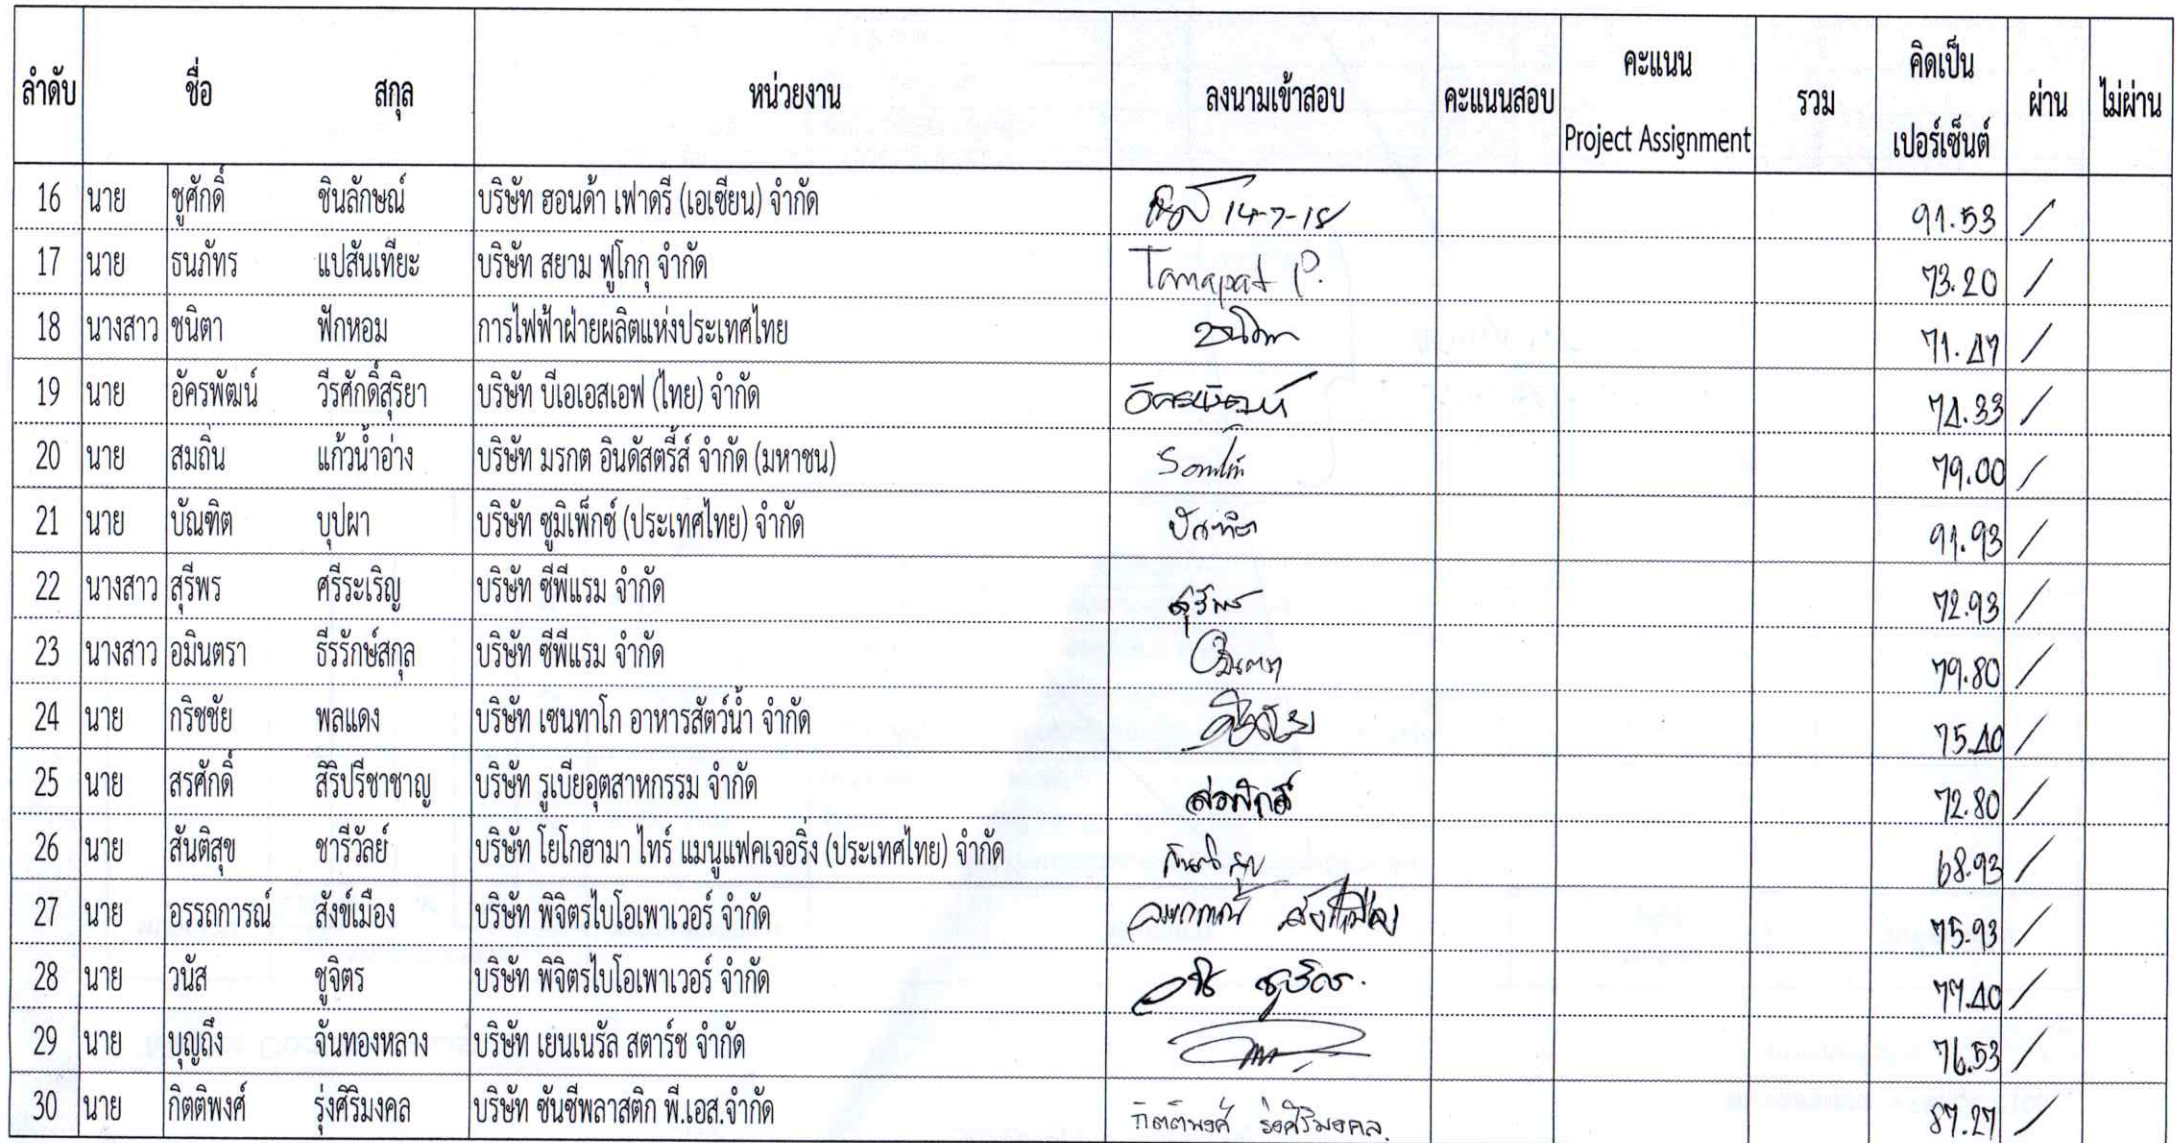 ลำดับ ชื่อ สกุล หน่วยงาน ลงนามเข้าสอบ คะแนนสอบ คะแนน Project Assignment รวม คิดเป็น เปอร์เซ็นต์ ผ่าน ไม่ผ่าน
16 นาย ชูศักดิ์ ชินลักษณ์ บริษัท ฮอนด้า เฟาดรี (เอเซียน) จำกัด 14-7-18 91.53 /
17 นาย ธนภัทร แปสันเทียะ บริษัท สยาม ฟูโกกุ จำกัด Tanapat P. 73.20 /
18 นางสาว ชนิตา ฟักหอม การไฟฟ้าฝ่ายผลิตแห่งประเทศไทย ชนิตา 71.47 /
19 นาย อัครพัฒน์ วีรศักดิ์สุริยา บริษัท บีเอเอสเอฟ (ไทย) จำกัด อัครพัฒน์ 74.33 /
20 นาย สมถิ่น แก้วน้ำอ่าง บริษัท มรกต อินดัสตรี้ส์ จำกัด (มหาชน) 79.00 /
21 นาย บัณฑิต บุปผา บริษัท ซูมิเพ็กซ์ (ประเทศไทย) จำกัด บัณฑิต 91.93 /
22 นางสาว สุรีพร ศรีระเริญ บริษัท ซีพีแรม จำกัด สุรีพร 72.93 /
23 นางสาว อมินตรา ธีรรักษ์สกุล บริษัท ซีพีแรม จำกัด 79.80 /
24 นาย กริชชัย พลแดง บริษัท เซนทาโก อาหารสัตว์น้ำ จำกัด 75.40 /
25 นาย สรศักดิ์ สิริปรีชาชาญ บริษัท รูเบียอุตสาหกรรม จำกัด สรศักดิ์ 72.80 /
26 นาย สันติสุข ชารีวัลย์ บริษัท โยโกฮามา ไทร์ แมนูแฟคเจอริ่ง (ประเทศไทย) จำกัด สันติสุข 68.93 /
27 นาย อรรถการณ์ สังข์เมือง บริษัท พิจิตรไบโอเพาเวอร์ จำกัด อรรถการณ์ สังข์เมือง 75.93 /
28 นาย วนัส ชูจิตร บริษัท พิจิตรไบโอเพาเวอร์ จำกัด วนัส ชูจิตร. 77.40 /
29 นาย บุญถึง จันทองหลาง บริษัท เยนเนรัล สตาร์ช จำกัด 76.53 /
30 นาย กิตติพงศ์ รุ่งศิริมงคล บริษัท ชันชีพลาสติก พี.เอส.จำกัด กิตติพงศ์ รุ่งศิริมงคล. 87.27 /